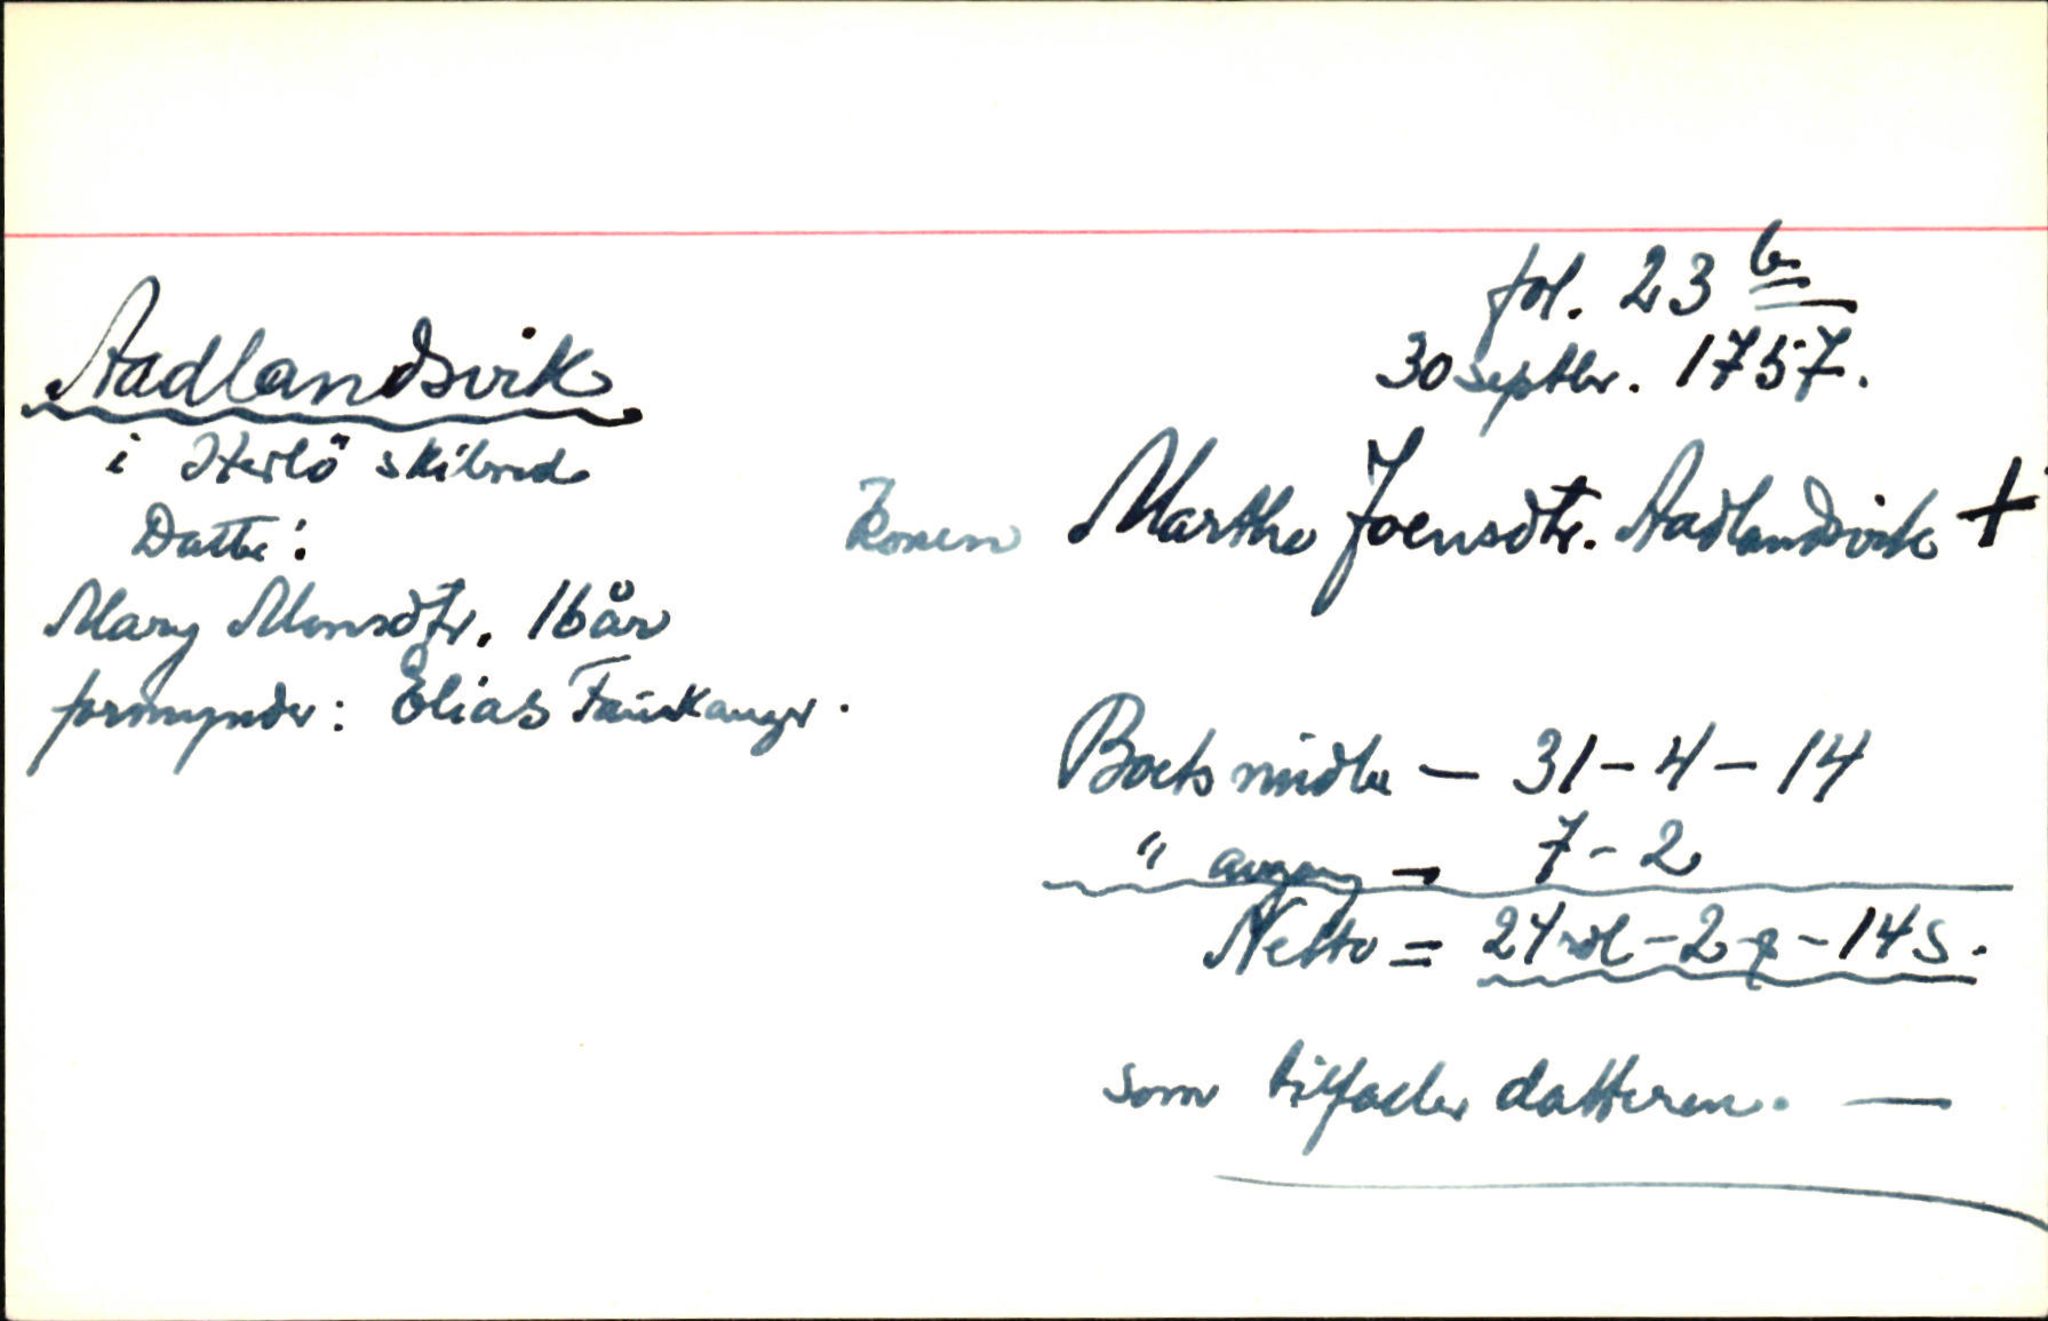 fol. 23 b
30 septbr. 1757.
Aadlandsvik
i Herlö skibred
Konen Marthe Joensdtr. Aadlandsvik +
Datter:
Mary Monsdtr. 16 år
formynder: Elias Fauskanger.
Boets midler — 31 – 4 – 14
" avgang — 7 – 2
Netto = 24 rdl – 2 – 14 s.
som tilfaller datteren. —